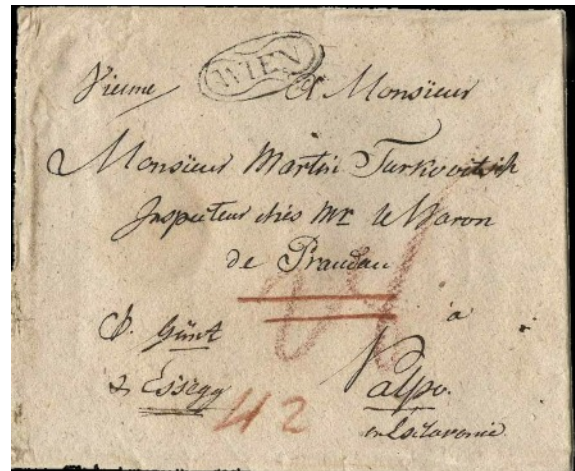 WIEN
Vienne A Monsieur
Monsieur Martin Turkovitsch
Inspecteur chés Mr le Baron
de Prandau
à
P. Günt
& Essegg
Valpo.
en Esclavonie
24
42